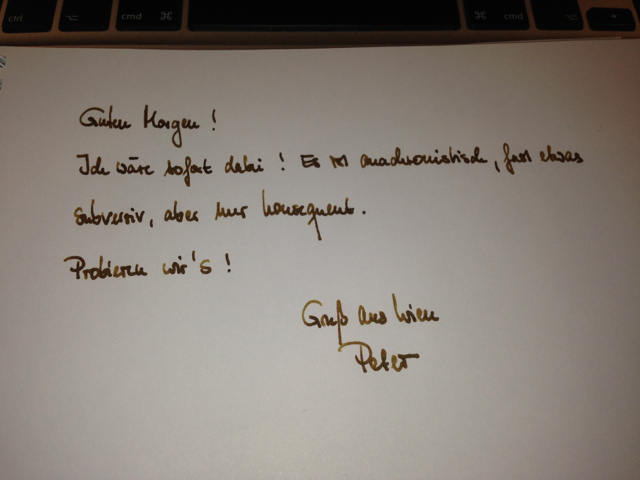 ctrl ⌥ cmd ⌘ ⌘ cmd ⌥
Guten Morgen!
Ich wäre sofort dabei! Es ist anachronistisch, fast etwas
subversiv, aber nur konsequent.
Probieren wir's!
Gruß aus Wien
Peter